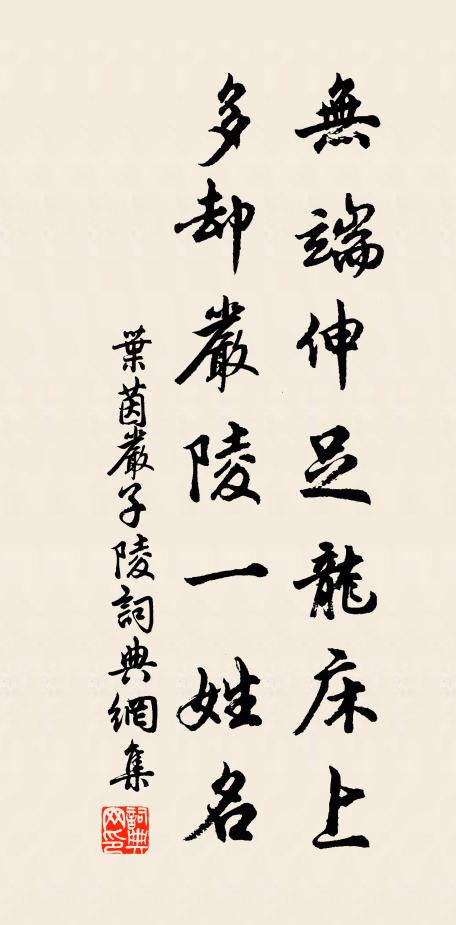 無端伸足龍床上
多却嚴陵一姓名
葉茵嚴子陵詞典網集
詞典
网印